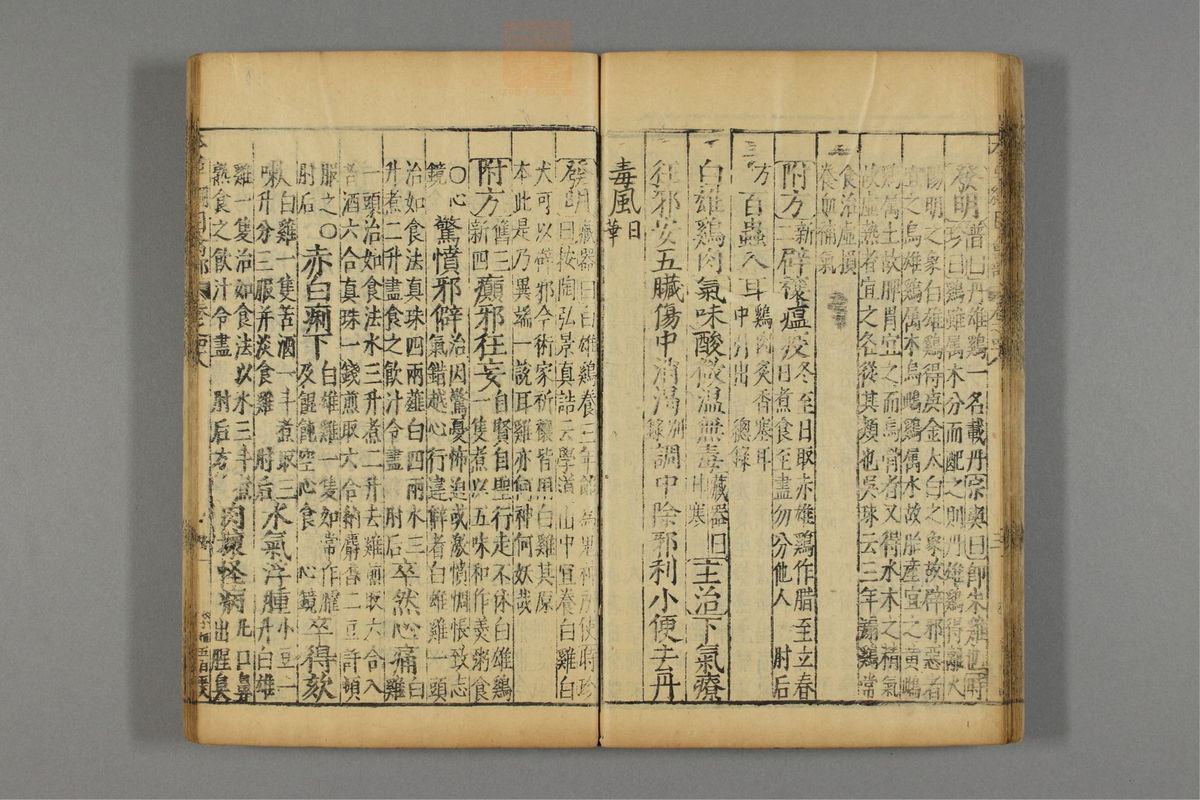 發明普曰丹雄鷄一名載丹宗奭曰卽朱雞也時
珍曰鷄雖属木分而配之則丹雄鷄得離火
陽明之象白雄鷄得庚金太白之象故辟邪惡者
宜之烏雄鷄属木烏雌鷄属水故胎產宜之黃雌
鷄属土故脾胃宜之而烏骨者又得水木之精氣
故虚熱者宜之各從其類也吳球云三年騸鷄常
食治虛損
養血補氣
附方新二辟禳瘟疫冬至日取赤雄鷄作腊至立春
日煮食至盡勿分他人 肘后
方百蟲入耳鷄肉炙香塞耳
中引出 總錄
白雄鷄肉氣味酸微温無毒藏器曰
甘寒主治下氣療
狂邪安五臟傷中消渴別
錄調中除邪利小便去丹
毒風日
華
發明藏器曰白雄鷄養三年能為鬼神所使時珍
曰按陶弘景真誥云學道山中宜養白雞白
犬可以辟邪今術家祈禳皆用白雞其原
本此是乃異端一說耳雞亦何神何妖哉
附方舊三
新四癲邪狂妄自賢自聖行走不休白雄鷄
一隻煮以五味和作羹粥食
〇心
鏡驚憤邪僻治因驚憂怖迫或激憤惆悵致志
氣錯越心行違僻者白雄雞一頭
治如食法真珠四兩薤白四兩水三
升煮二升盡食之飲汁令盡 肘后卒然心痛白
雄雞
一頭治如食法水三升煮二升去雞煎取六合入
苦酒六合真珠一錢煎取六合納麝香二豆許頓
服之〇
肘后赤白痢下白雄雞一隻如常作臛
及餛飩空心食 心鏡卒得欬
嗽白雄雞一隻苦酒一斗煮取三
升分三服并淡食雞 肘后水氣浮腫小豆一
升白雄
雞一隻治如食法以水三斗煮
熟食之飲汁令盡 肘后方肉壞怪病凡口鼻
出腥臭